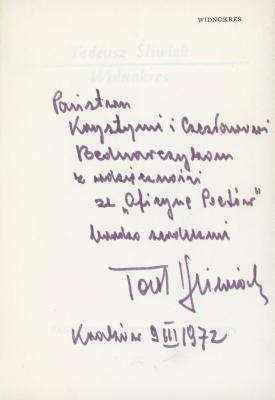 WIDNOKRES
Tadeusz Śliwiak
Widnokres
Państwu
Krystynie i Czesławowi
Bednarczykom
z wdzięczności
za „Oficynę Poetów"
bardzo serdecznie
Tad Śliwiak
Kraków 9 III 1972